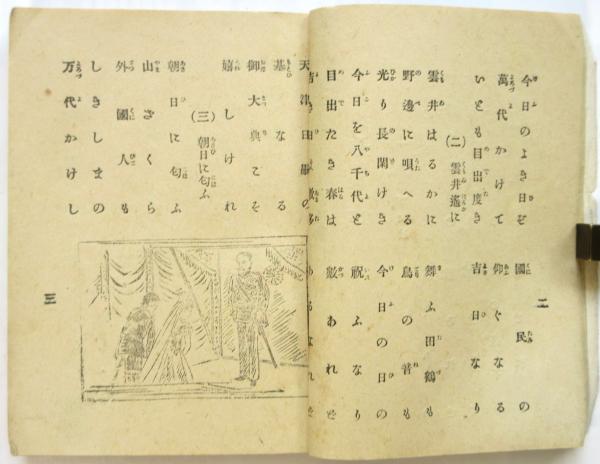 今日のよき日ぞ　國民の
萬代かけて　仰ぐなる
いとも目出度き　吉日なり
(二)　雲井遙に
雲井はるかに　舞ふ田鶴も
野邊に唄へる　鳥の音も
光り長閑けき　今日の日の
今日を八千代と　祝ふなり
目出たき春は　數あれど
二
基なる
御大典こそ
嬉しけれ
(三)　朝日に匂ふ
朝日に匂ふ
山ざくら
外國人も
しきしまの
万代かけし
三